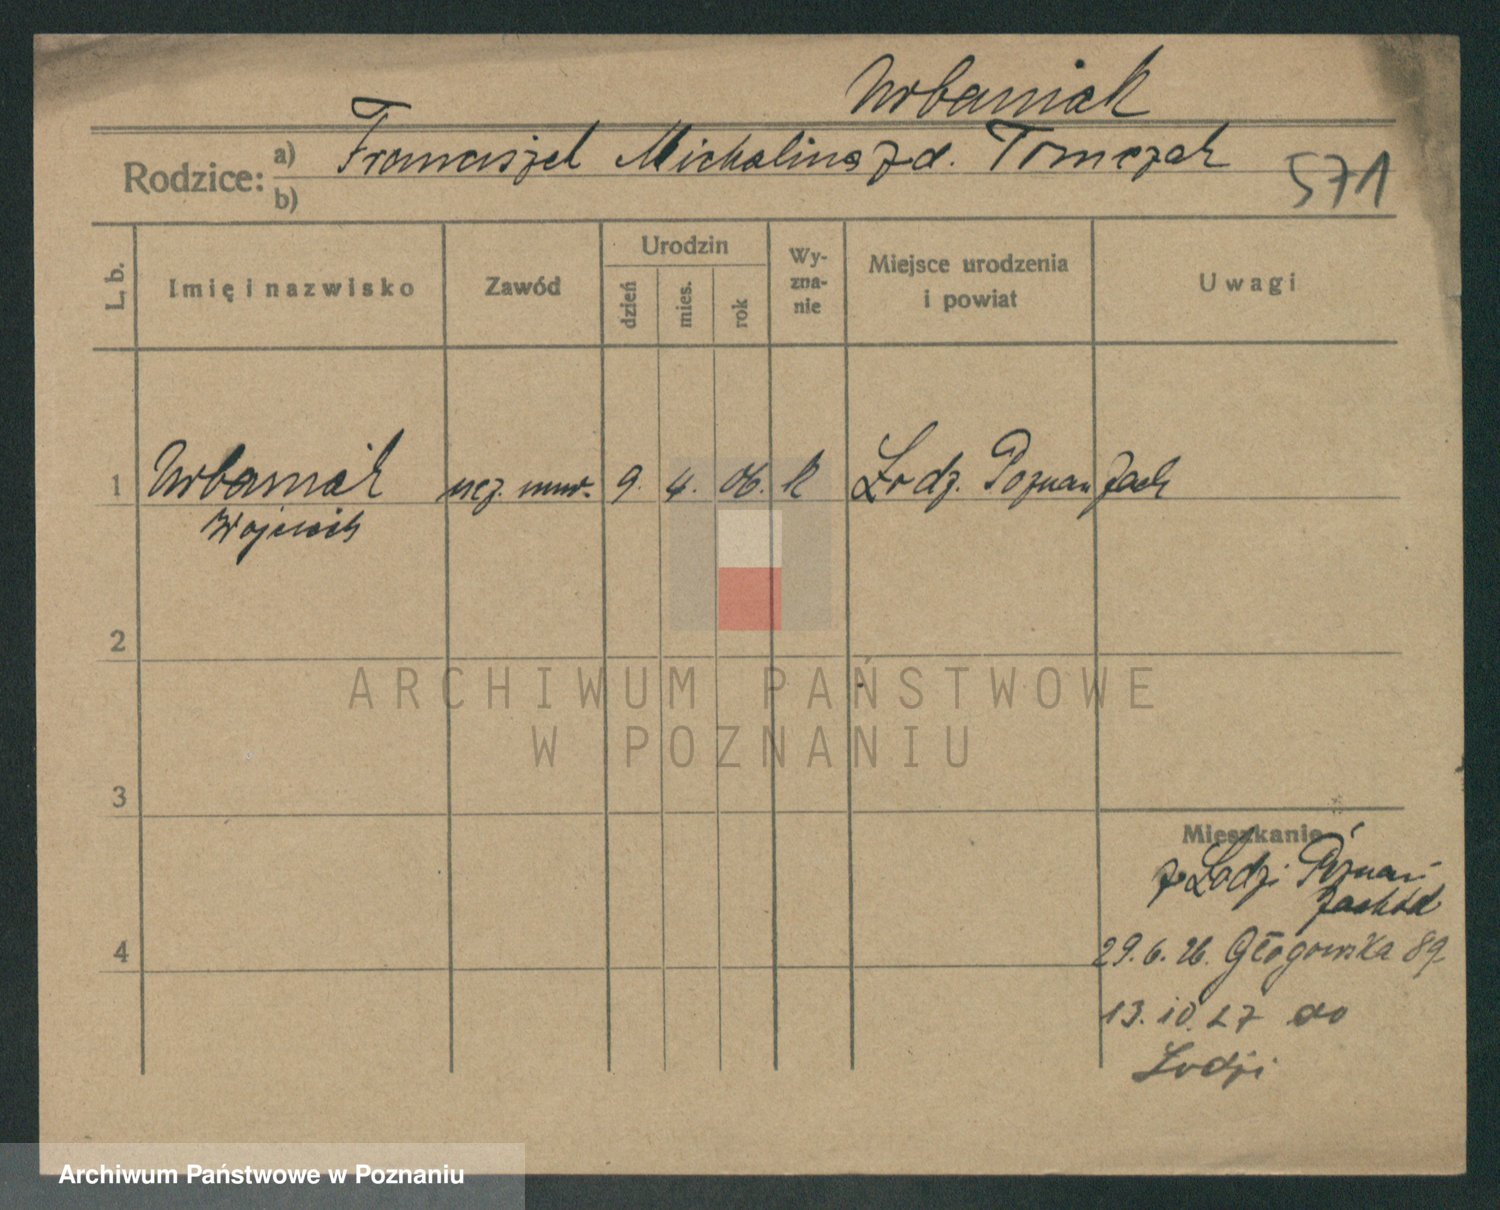 Urbaniak
Rodzice: a) Franciszek Michalina z d. Tomczak
b)
571
L. b.
Imię i nazwisko
Zawód
Urodzin
dzień
mies.
rok
Wy-
zna-
nie
Miejsce urodzenia
i powiat
Uwagi
1 Urbaniak ucz. mur. 9. 4. 06. k Lodz. Poznan Zach
Wojciech
2
ARCHIWUM PAŃSTWOWE
W POZNANIU
3
Mieszkanie
z Lodzi Poznań
Zachód
4
29.6.26. Głogowska 89
13.10.27 do
Lodzi
Archiwum Państwowe w Poznaniu